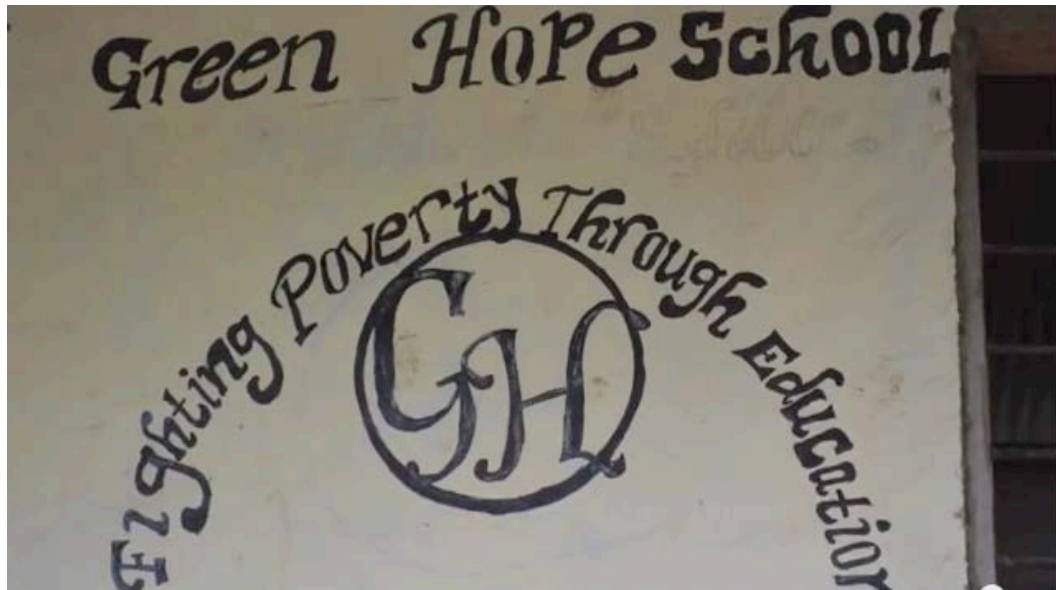 Green Hope School
Fighting Poverty Through Education
GH